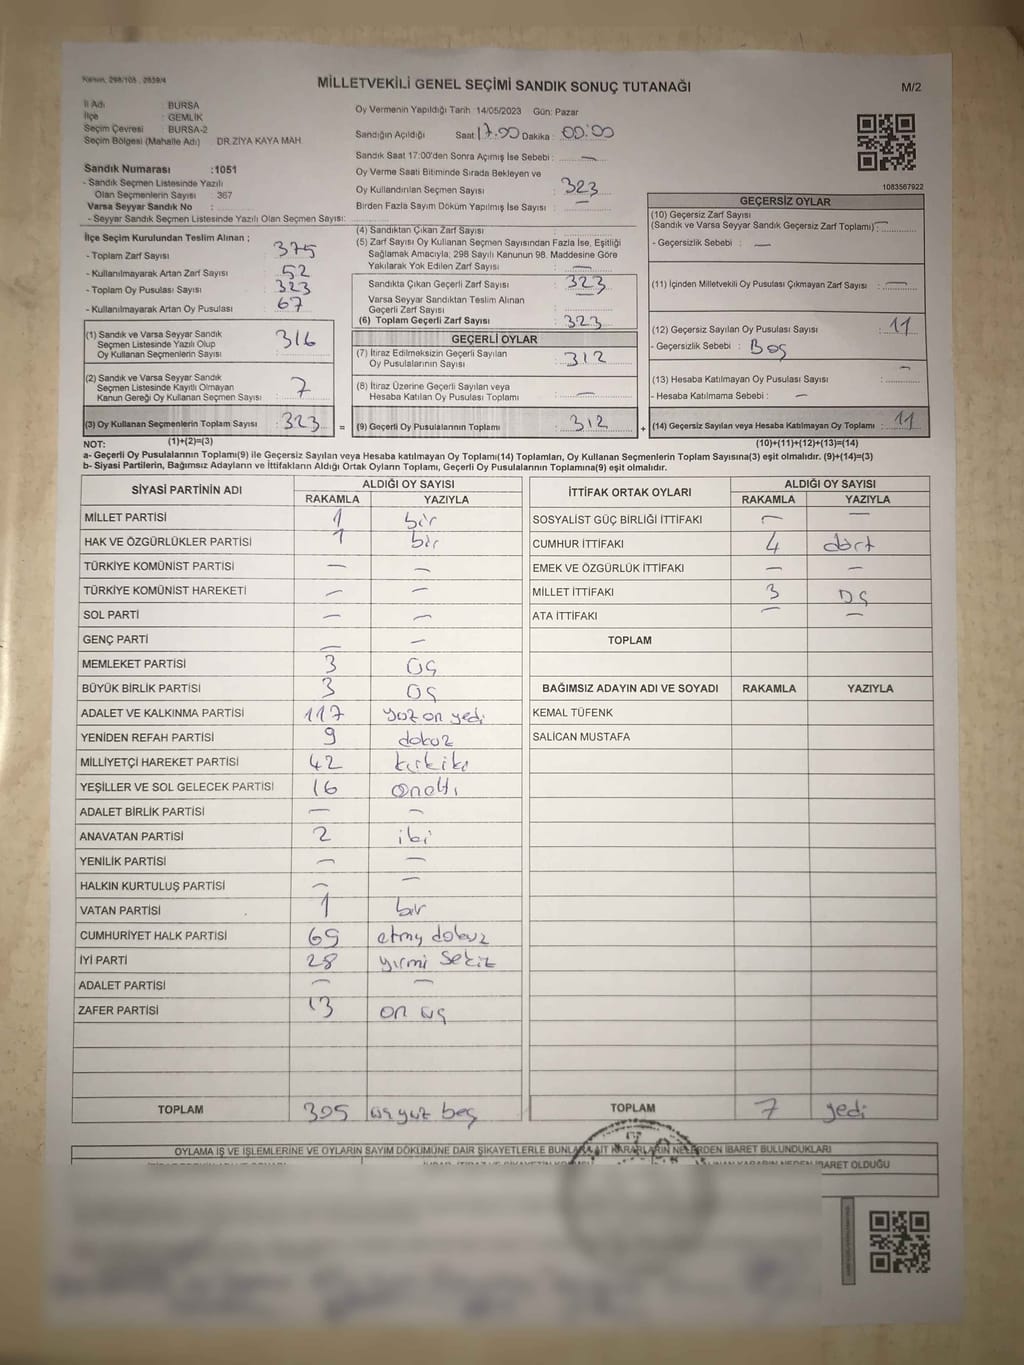 Kanun, 298/105 , 2839/4
MİLLETVEKİLİ GENEL SEÇİMİ SANDIK SONUÇ TUTANAĞI
M/2
İl Adı : BURSA
İlçe : GEMLİK
Seçim Çevresi : BURSA-2
Seçim Bölgesi (Mahalle Adı) DR.ZİYA KAYA MAH.
Sandık Numarası :1051
- Sandık Seçmen Listesinde Yazılı
Olan Seçmenlerin Sayısı 367
Varsa Seyyar Sandık No :
- Seyyar Sandık Seçmen Listesinde Yazılı Olan Seçmen Sayısı:
Oy Vermenin Yapıldığı Tarih :14/05/2023 Gün: Pazar
Sandığın Açıldığı Saat 17.00 Dakika : 00:00
Sandık Saat 17:00'den Sonra Açımış İse Sebebi : —
Oy Verme Saati Bitiminde Sırada Bekleyen ve
Oy Kullandırılan Seçmen Sayısı : 323
Birden Fazla Sayım Döküm Yapılmış İse Sayısı : —
1083567922
İlçe Seçim Kurulundan Teslim Alınan ;
- Toplam Zarf Sayısı : 375
- Kullanılmayarak Artan Zarf Sayısı : 52
- Toplam Oy Pusulası Sayısı : 323
- Kullanılmayarak Artan Oy Pusulası : 67
(1) Sandık ve Varsa Seyyar Sandık
Seçmen Listesinde Yazılı Olup
Oy Kullanan Seçmenlerin Sayısı : 316
(2) Sandık ve Varsa Seyyar Sandık
Seçmen Listesinde Kayıtlı Olmayan
Kanun Gereği Oy Kullanan Seçmen Sayısı : 7
(3) Oy Kullanan Seçmenlerin Toplam Sayısı : 323
=
(4) Sandıktan Çıkan Zarf Sayısı :
(5) Zarf Sayısı Oy Kullanan Seçmen Sayısından Fazla İse, Eşitliği
Sağlamak Amacıyla; 298 Sayılı Kanunun 98. Maddesine Göre
Yakılarak Yok Edilen Zarf Sayısı : —
Sandıkta Çıkan Geçerli Zarf Sayısı : 323
Varsa Seyyar Sandıktan Teslim Alınan
Geçerli Zarf Sayısı : —
(6) Toplam Geçerli Zarf Sayısı : 323
GEÇERLİ OYLAR
(7) İtiraz Edilmeksizin Geçerli Sayılan
Oy Pusulalarının Sayısı : 312
(8) İtiraz Üzerine Geçerli Sayılan veya
Hesaba Katılan Oy Pusulası Toplamı : —
(9) Geçerli Oy Pusulalarının Toplamı : 312
+
GEÇERSİZ OYLAR
(10) Geçersiz Zarf Sayısı
(Sandık ve Varsa Seyyar Sandık Geçersiz Zarf Toplamı) : —
- Geçersizlik Sebebi : —
(11) İçinden Milletvekili Oy Pusulası Çıkmayan Zarf Sayısı : —
(12) Geçersiz Sayılan Oy Pusulası Sayısı : 11
- Geçersizlik Sebebi : Boş
(13) Hesaba Katılmayan Oy Pusulası Sayısı : —
- Hesaba Katılmama Sebebi : —
(14) Geçersiz Sayılan veya Hesaba Katılmayan Oy Toplamı : 11
NOT: (1)+(2)=(3)
(10)+(11)+(12)+(13)=(14)
a- Geçerli Oy Pusulasının Toplamı(9) ile Geçersiz Sayılan veya Hesaba katılmayan Oy Toplamı(14) Toplamları, Oy Kullanan Seçmenlerin Toplam Sayısına(3) eşit olmalıdır. (9)+(14)=(3)
b- Siyasi Partilerin, Bağımsız Adayların ve İttifakların Aldığı Ortak Oyların Toplamı, Geçerli Oy Pusulasının Toplamına(9) eşit olmalıdır.
SİYASİ PARTİNİN ADI ALDIĞI OY SAYISI
RAKAMLA YAZIYLA
MİLLET PARTİSİ 1 bir
HAK VE ÖZGÜRLÜKLER PARTİSİ 1 bir
TÜRKİYE KOMÜNİST PARTİSİ — —
TÜRKİYE KOMÜNİST HAREKETİ — —
SOL PARTİ — —
GENÇ PARTİ — —
MEMLEKET PARTİSİ 3 üç
BÜYÜK BİRLİK PARTİSİ 3 üç
ADALET VE KALKINMA PARTİSİ 117 yüz on yedi
YENİDEN REFAH PARTİSİ 9 dokuz
MİLLİYETÇİ HAREKET PARTİSİ 42 kırkiki
YEŞİLLER VE SOL GELECEK PARTİSİ 16 onaltı
ADALET BİRLİK PARTİSİ — —
ANAVATAN PARTİSİ 2 iki
YENİLİK PARTİSİ — —
HALKIN KURTULUŞ PARTİSİ — —
VATAN PARTİSİ 1 bir
CUMHURİYET HALK PARTİSİ 69 atmış dokuz
İYİ PARTİ 28 yirmi sekiz
ADALET PARTİSİ — —
ZAFER PARTİSİ 13 on üç
TOPLAM 305 üçyüz beş
İTTİFAK ORTAK OYLARI ALDIĞI OY SAYISI
RAKAMLA YAZIYLA
SOSYALİST GÜÇ BİRLİĞİ İTTİFAKI — —
CUMHUR İTTİFAKI 4 dört
EMEK VE ÖZGÜRLÜK İTTİFAKI — —
MİLLET İTTİFAKI 3 üç
ATA İTTİFAKI — —
TOPLAM
BAĞIMSIZ ADAYIN ADI VE SOYADI RAKAMLA YAZIYLA
KEMAL TÜFENK
SALİCAN MUSTAFA
TOPLAM 7 yedi
OYLAMA İŞ VE İŞLEMLERİNE VE OYLARIN SAYIM DÖKÜMÜNE DAİR ŞİKAYETLERLE BUNLARA AİT KARARLARIN NELERDEN İBARET BULUNDUKLARI
İBARET OLDUĞU